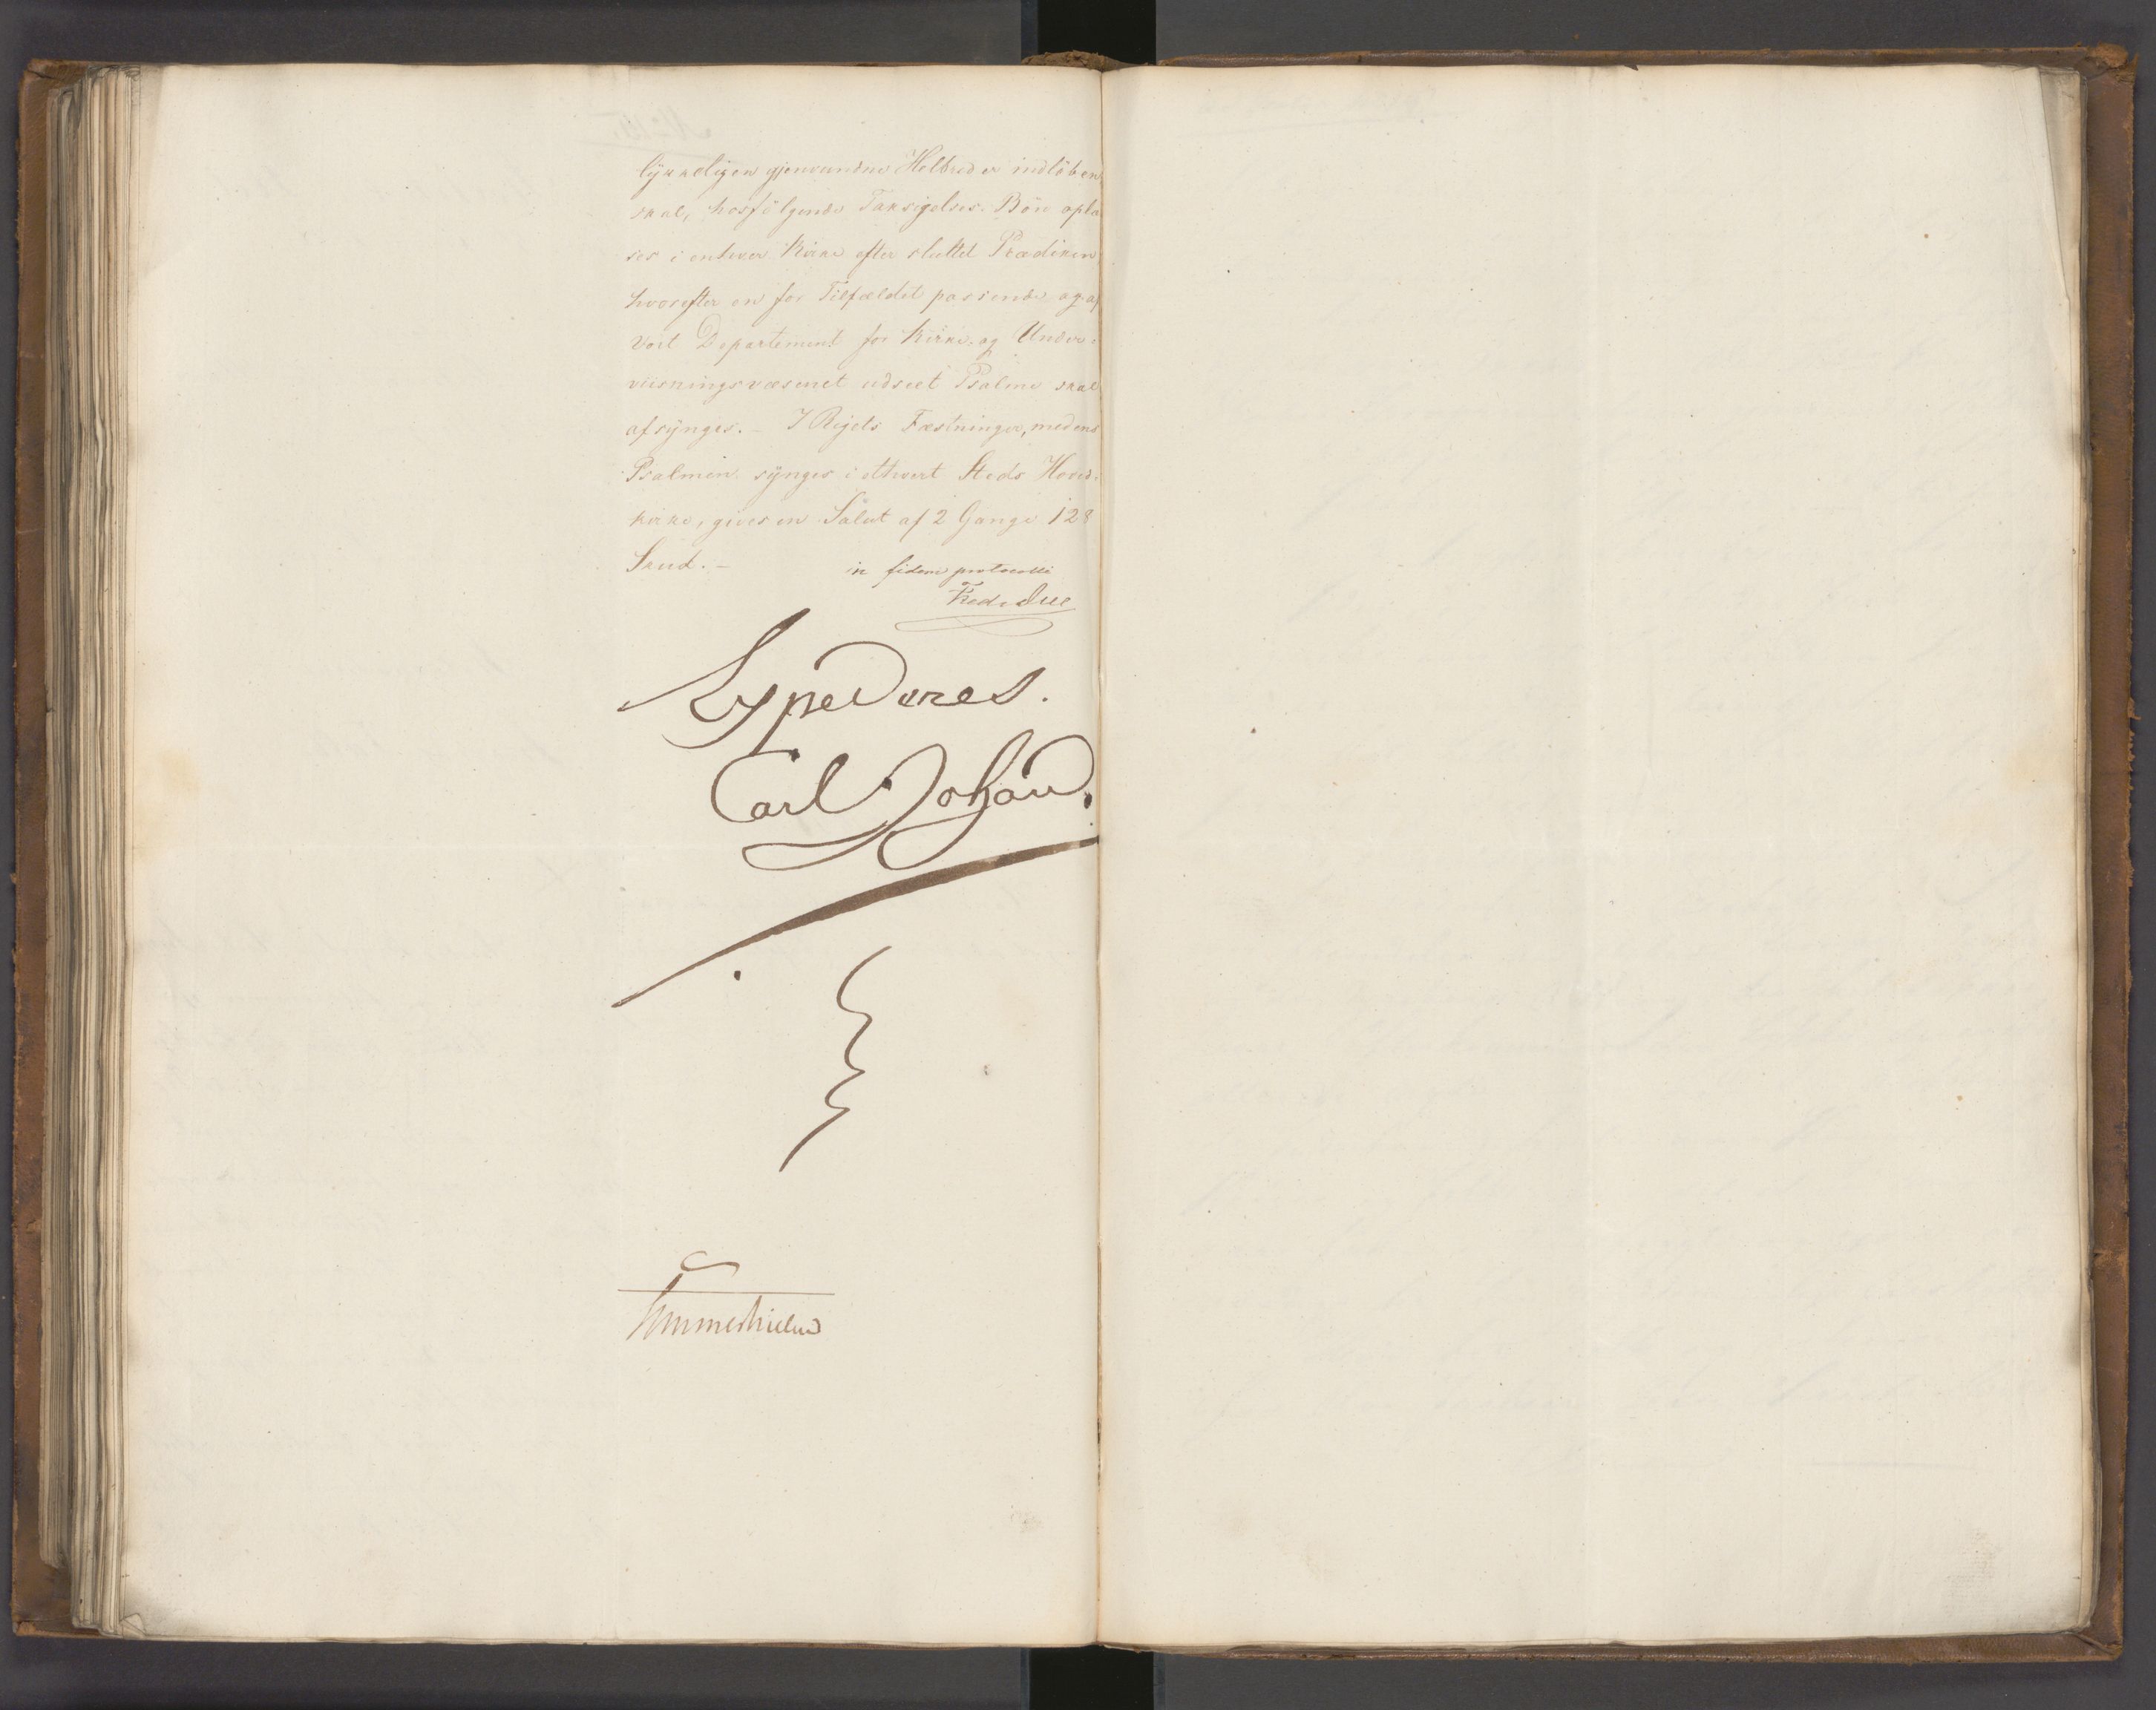 lykkeligen gjenvundne Helbred er indløben
skal, hosfölgende Taksigelses-Bön oplæ
ses i enhver Kirke efter sluttet Prædiken
hvorefter en for Tilfældet passende og af
Vort Departement for Kirke- og Under-
viisningsvæsenet udseet Psalme skal
afsÿnges. - I Rigets Fæstninger, medens
Psalmen sÿnges i ethvert Steds Hoved-
kirke, gives en Salut af 2 Gange 128
Skud. - in fidem protocolli
Fredr Due
Expederes.
Carl Johan.